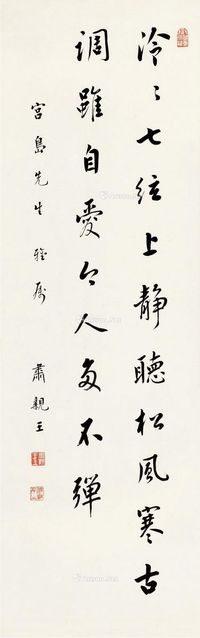 泠〻七弦上静聽松風寒古
調雖自愛今人多不彈
宮島先生雅屬
肅親王